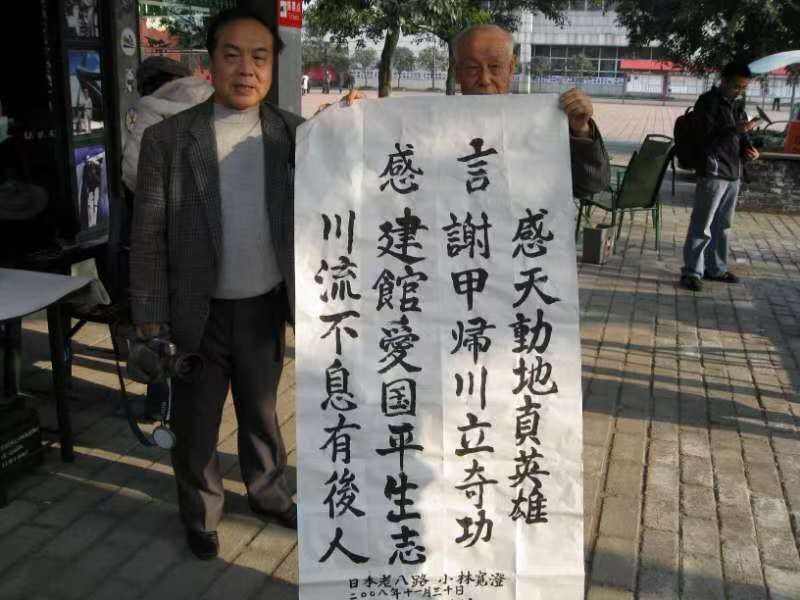 感言
感天動地貞英雄
謝甲帰川立奇功
建館愛国平生志
川流不息有後人
日本老八路 小林寬澄
二〇〇八年十一月三十日